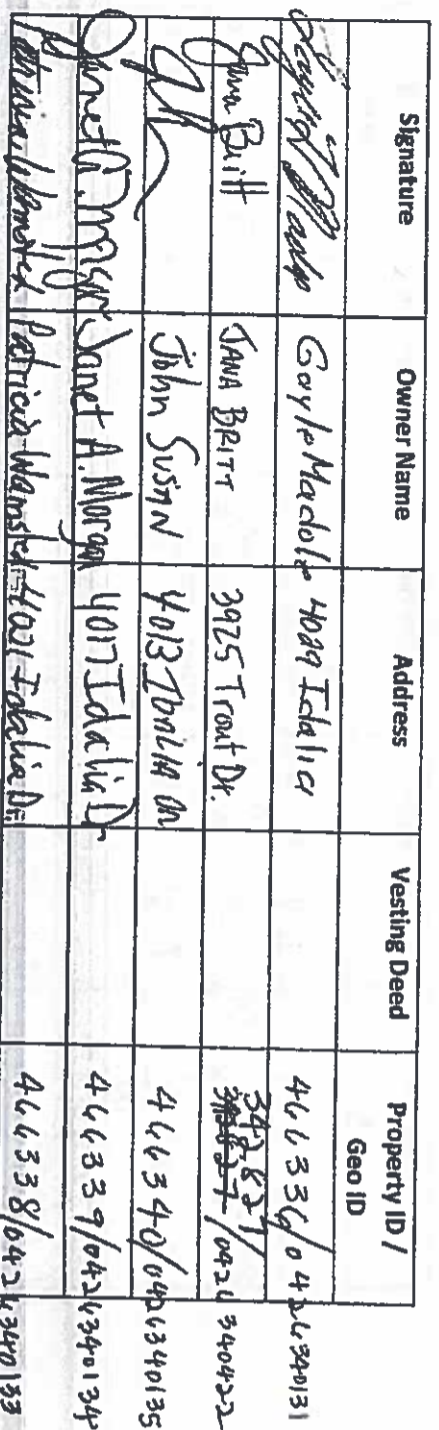 Signature Owner Name Address Vesting Deed Property ID / Geo ID
Gayle Madole 4029 Idalia 466336/0426340131
Jana Britt JANA BRITT 3925 Trout Dr. 342827/0426340422
John Susan 4013 Idalia Dr 466340/0426340135
Janet A. Morgan Janet A. Morgan 4017 Idalia Dr 466339/0426340134
Patricia Wamsted Patricia Wamsted 4021 Idalia Dr. 466338/0426340133